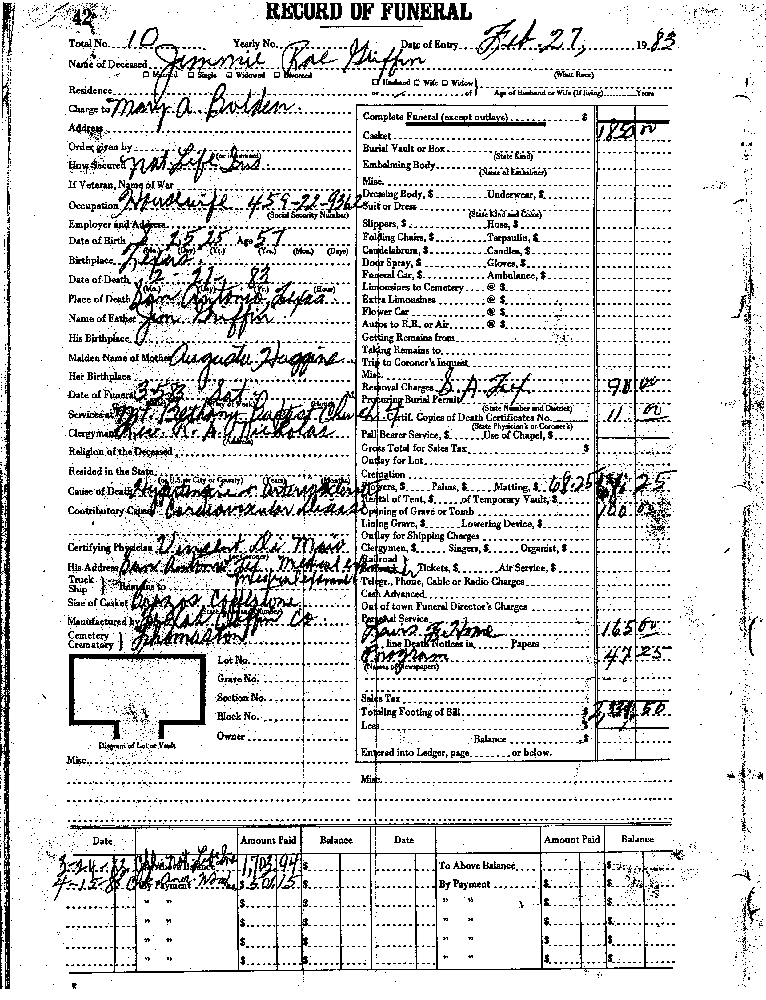 42
RECORD OF FUNERAL
Total No. 10 Yearly No. Date of Entry Feb. 27, 1983
Name of Deceased Jimmie Rae Griffin
☐ Married ☐ Single ☐ Widowed ☐ Divorced ☐ Husband ☐ Wife ☐ Widow (What Race)
Residence or of Age of Husband or Wife (if living) Years
Charge to Mary A. Bolden
Address
Order given by
How Secured Nat. Life Ins
If Veteran, Name of War
Occupation Housewife 459-22-9362
(Social Security Number)
Employer and Address
Date of Birth 8 25 25 Age 57
(Mo.) (Day) (Yr.) (Yrs.) (Mos.) (Days)
Birthplace Texas
Date of Death 2-21-83
(Hour)
Place of Death San Antonio, Texas
Name of Father Jim Griffin
His Birthplace
Maiden Name of Mother Augusta Huggins
Her Birthplace
Date of Funeral 3-5-83 Sat.
Services at Mt. Bethany Baptist Church
Clergyman Rev. Nicholas
Religion of the Deceased
Resided in the State
(or U.S. or City or County) (Years) (Months)
Cause of Death Hypertensive & Arteriosclerotic
Contributory Cause Cardiovascular Disease
Certifying Physician Vincent Di Maio
His Address San Antonio, Tex. Medical examiner
Truck Ship } Remains to
Size of Casket Copestone
Manufactured by Coffin Co.
Cemetery Crematory } Thomaston
Lot No.
Grave No.
Section No.
Block No.
Owner
Diagram of Lot or Vault
Misc.
Complete Funeral (except outlays) $
Casket 1850 00
Burial Vault or Box
(State Kind)
Embalming Body
(Name of Embalmer)
Misc.
Dressing Body, $ Underwear, $
Suit or Dress
(State Kind and Color)
Slippers, $ Hose, $
Folding Chairs, $ Tarpaulin, $
Candelabrum, $ Candles, $
Door Spray, $ Gloves, $
Funeral Car, $ Ambulance, $
Limousines to Cemetery @ $
Extra Limousines @ $
Flower Car @ $
Autos to R.R. or Air @ $
Getting Remains from
Taking Remains to
Trip to Coroner's Inquest
Misc.
Removal Charges S. A. Tex 90 00
Procuring Burial Permit
(State Number and District)
4 Certif. Copies of Death Certificates No. 11 00
(State Physician's or Coroner's)
Pall Bearer Service, $ Use of Chapel, $
Gross Total for Sales Tax $
Outlay for Lot
Cremation
Flowers, $ Palms, $ Matting, $ 68.25 25
Rental of Tent, $ of Temporary Vault, $
Opening of Grave or Tomb 100 00
Lining Grave, $ Lowering Device, $
Outlay for Shipping Charges
Clergymen, $ Singers, $ Organist, $
Railroad Tickets, $ Air Service, $
Telegr., Phone, Cable or Radio Charges
Cash Advanced
Out of town Funeral Director's Charges
Personal Service
165 00
line Death Notices in Papers
Program 47 25
(Names of Newspapers)
Sales Tax
Totaling Footing of Bill $ 50
Less
Balance $
Entered into Ledger, page or below.
Misc.
Date Amount Paid Balance Date Amount Paid Balance
3-24-83 Nat Life Ins $1,703 94 $ To Above Balance $
4-15-83 By Payment $506 15 $ By Payment $ $
" " $ $ " " $ $
" " $ $ " " $ $
" " $ $ " " $ $
" " $ $ " " $ $